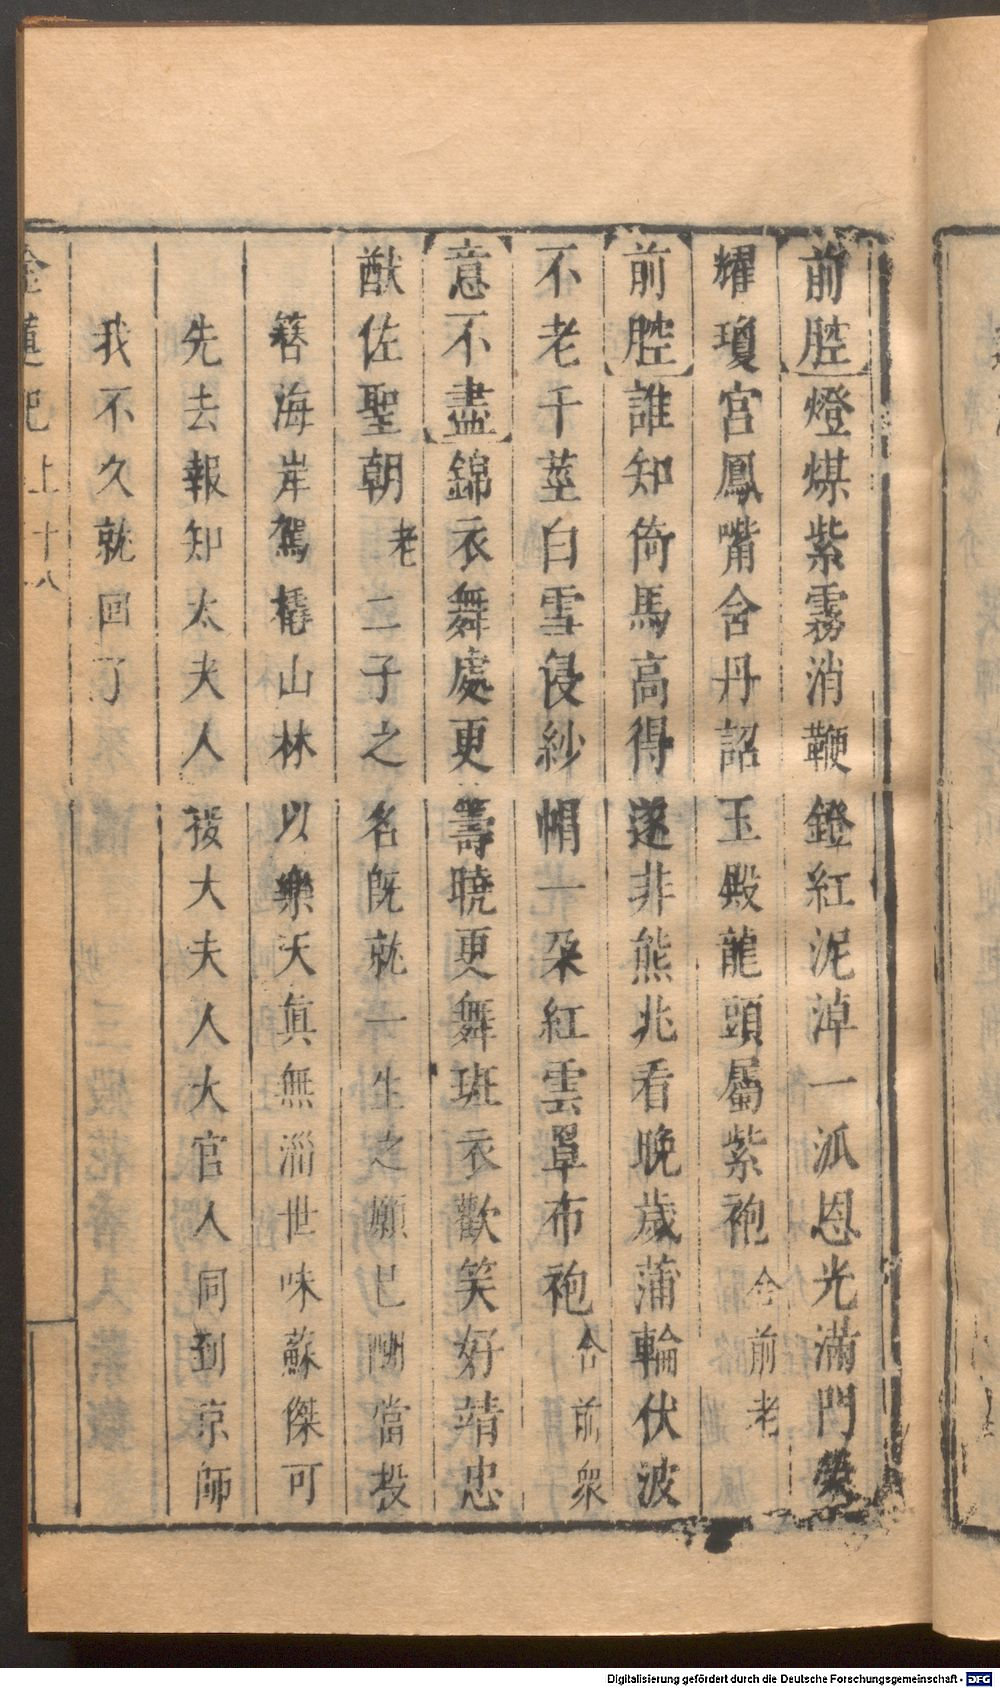 前腔燈煤紫霧消鞭鐙紅泥淖一派恩光滿門榮
耀瓊宮鳳嘴含丹詔玉殿龍頭屬紫袍合前老
前腔誰知倚馬高得遂非熊兆看晚歲蒲輪伏波
不老千莖白雪侵紗帽一朶紅雲罩布袍合前衆
意不盡錦衣舞處更籌曉更舞班衣歡笑好靖忠
猷佐聖朝老二子之名旣就一生之願已酬當投
簪海岸駕橇山林以樂天眞無溺世味蘇傑可
先去報知太夫人後大夫人大官人同到京師
我不久就回了
金蓮記上十八
Digitalisierung gefördert durch die Deutsche Forschungsgemeinschaft - DFG